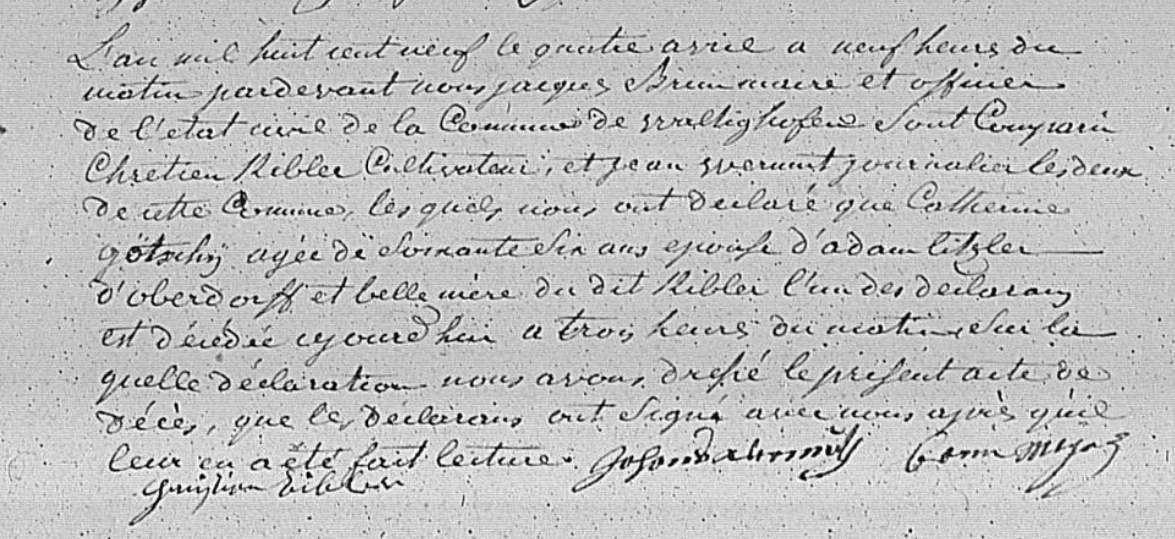 L'an mil huit cent neuf le quatre avril a neuf heures du
matin pardevant nous jacques Brun maire et officier
de l'etat civil de la Commune de Waltighofen Sont Comparu
Chretien Kibler Cultivateur, et jean journalier les deux
de cette Commune, les quels nous ont declaré que Catherine
götschÿ agée de Soixante Six ans epouse d'adam litzler
d'oberdorff et belle mère du dit Kibler l'un des declarans
est décédée cejourd'hui a trois heures du matin, Sur la
quelle déclaration nous avons dressé le présent acte de
décès, que les declarans ont Signé avec nous après qu'il
leur en a été fait lecture.